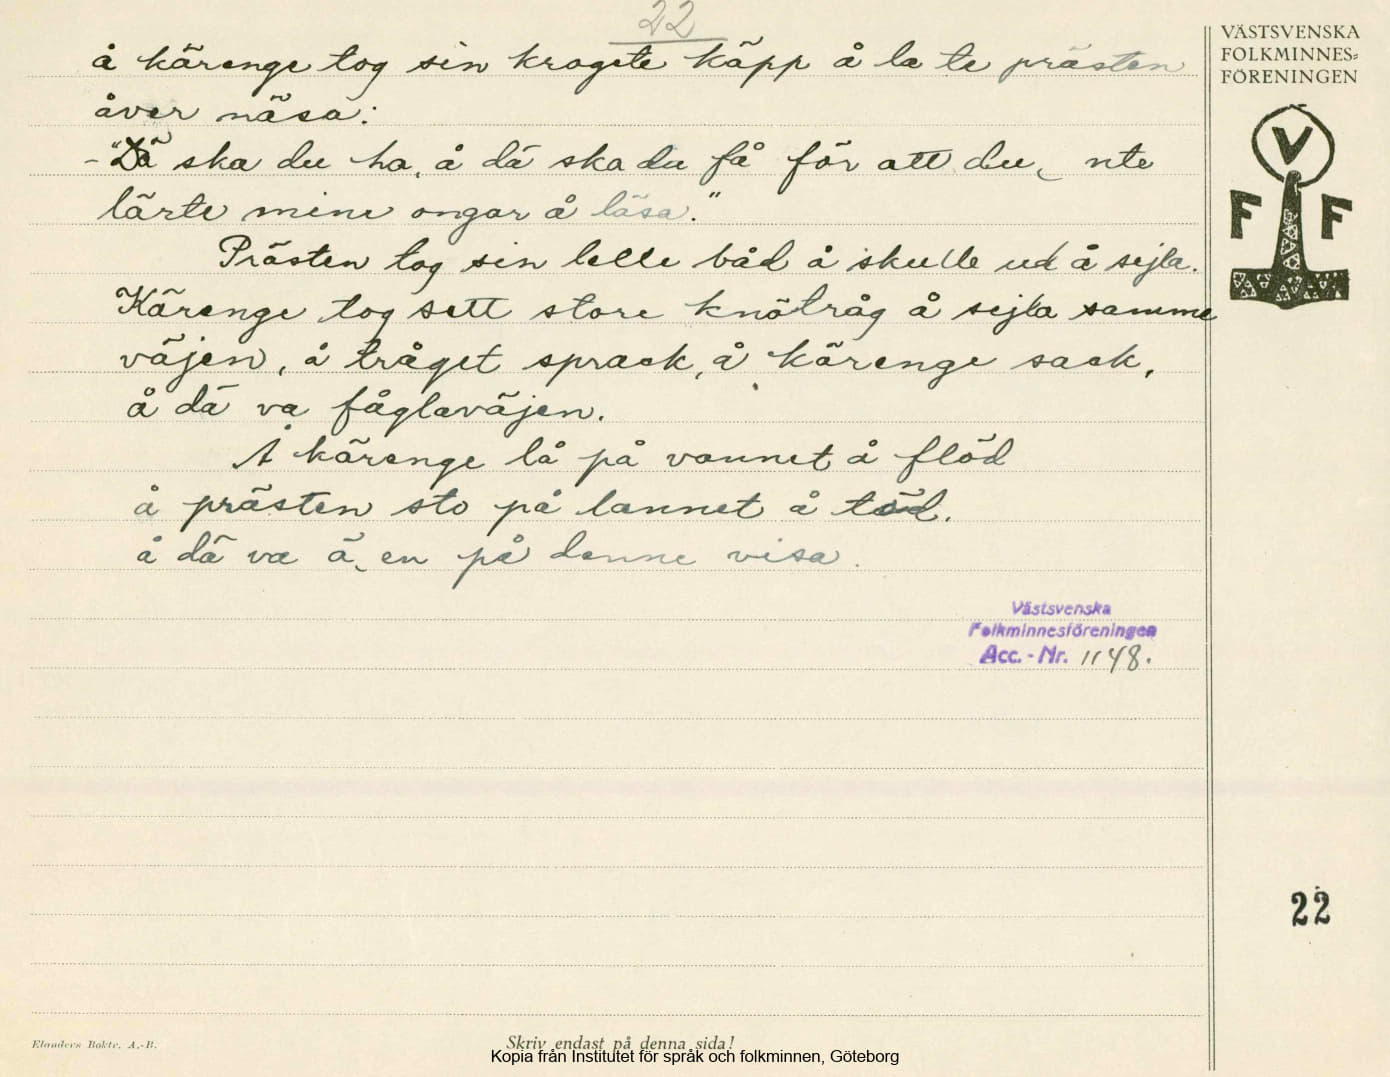 22
VÄSTSVENSKA
FOLKMINNES=
FÖRENINGEN
V
F F
å kärenge tog sin krogete käpp å la te prästen
åver näsa:
-"Dä ska du ha, å dä ska du få för att du, nte
lärte mine ongar å läsa."
Prästen tog sin lelle båd å skulle ud å sejla.
Kärenge tog sett store knötråg å sejla samme
väjen, å tråget sprack, å kärenge sack,
å dä va fåglaväjen.
Å kärenge lå på vannet å flöd
å prästen sto på lannet å töd.
å dä va ä, en på denne visa.
Västsvenska
Folkminnesföreningen
Acc.-Nr. 1148.
22
Elanders Boktr. A.-B.
Skriv endast på denna sida!
Kopia från Institutet för språk och folkminnen, Göteborg